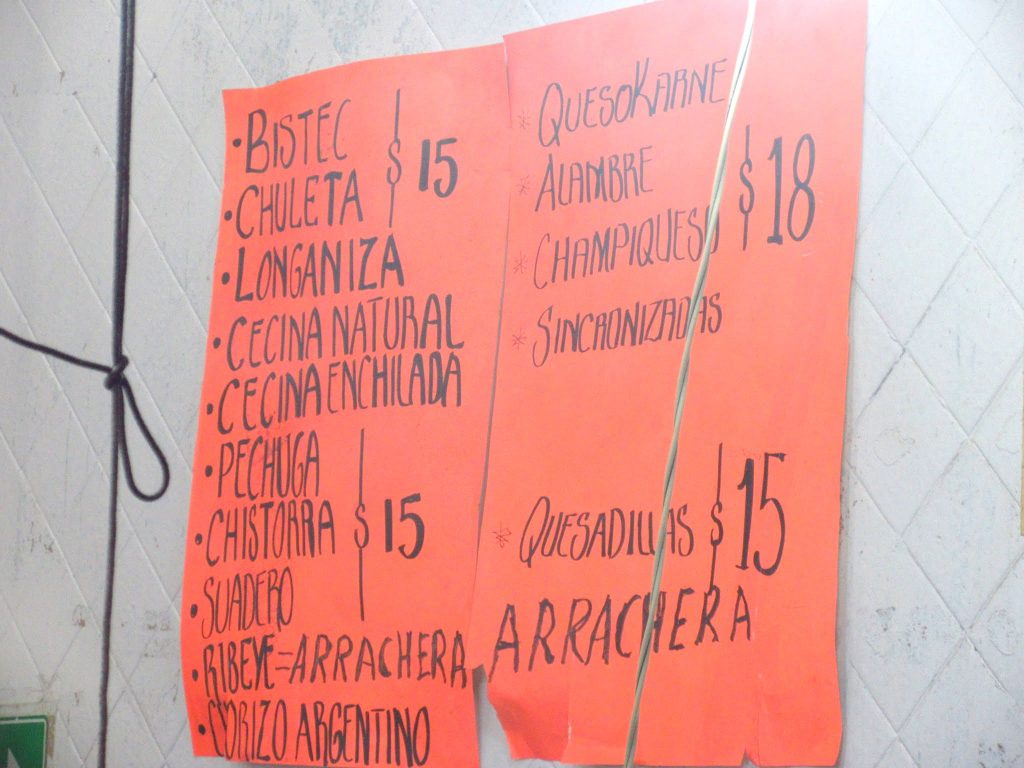 • BISTEC
• CHULETA
$ 15
• LONGANIZA
• CECINA NATURAL
• CECINA ENCHILADA
• PECHUGA
• CHISTORRA
$ 15
• SUADERO
• RIBEYE=ARRACHERA
• CORIZO ARGENTINO
* QUESOKARNE
* ALAMBRE
$ 18
* CHAMPIQUESO
* SINCRONIZADAS
* QUESADILLAS $ 15
ARRACHERA